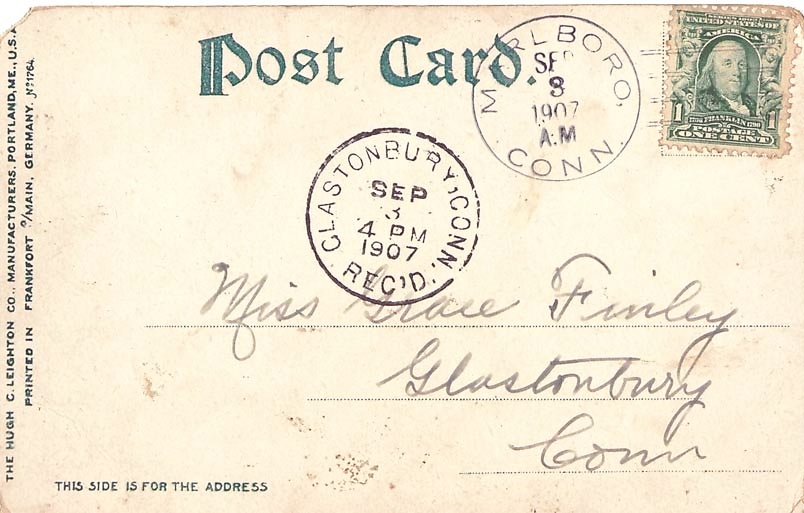 Post Card.
MARLBORO, CONN.
SEP
3
1907
A.M
SERIES 1902
UNITED STATES OF
AMERICA
1706 FRANKLIN 1790
POSTAGE
1 ONE CENT 1
GLASTONBURY, CONN.
SEP
3
4 PM
1907
REC'D.
Miss Grace Finley
Glastonbury
Conn
THIS SIDE IS FOR THE ADDRESS
THE HUGH C. LEIGHTON CO., MANUFACTURERS, PORTLAND, ME., U.S.A
PRINTED IN FRANKFORT o/MAIN, GERMANY. No 1764.